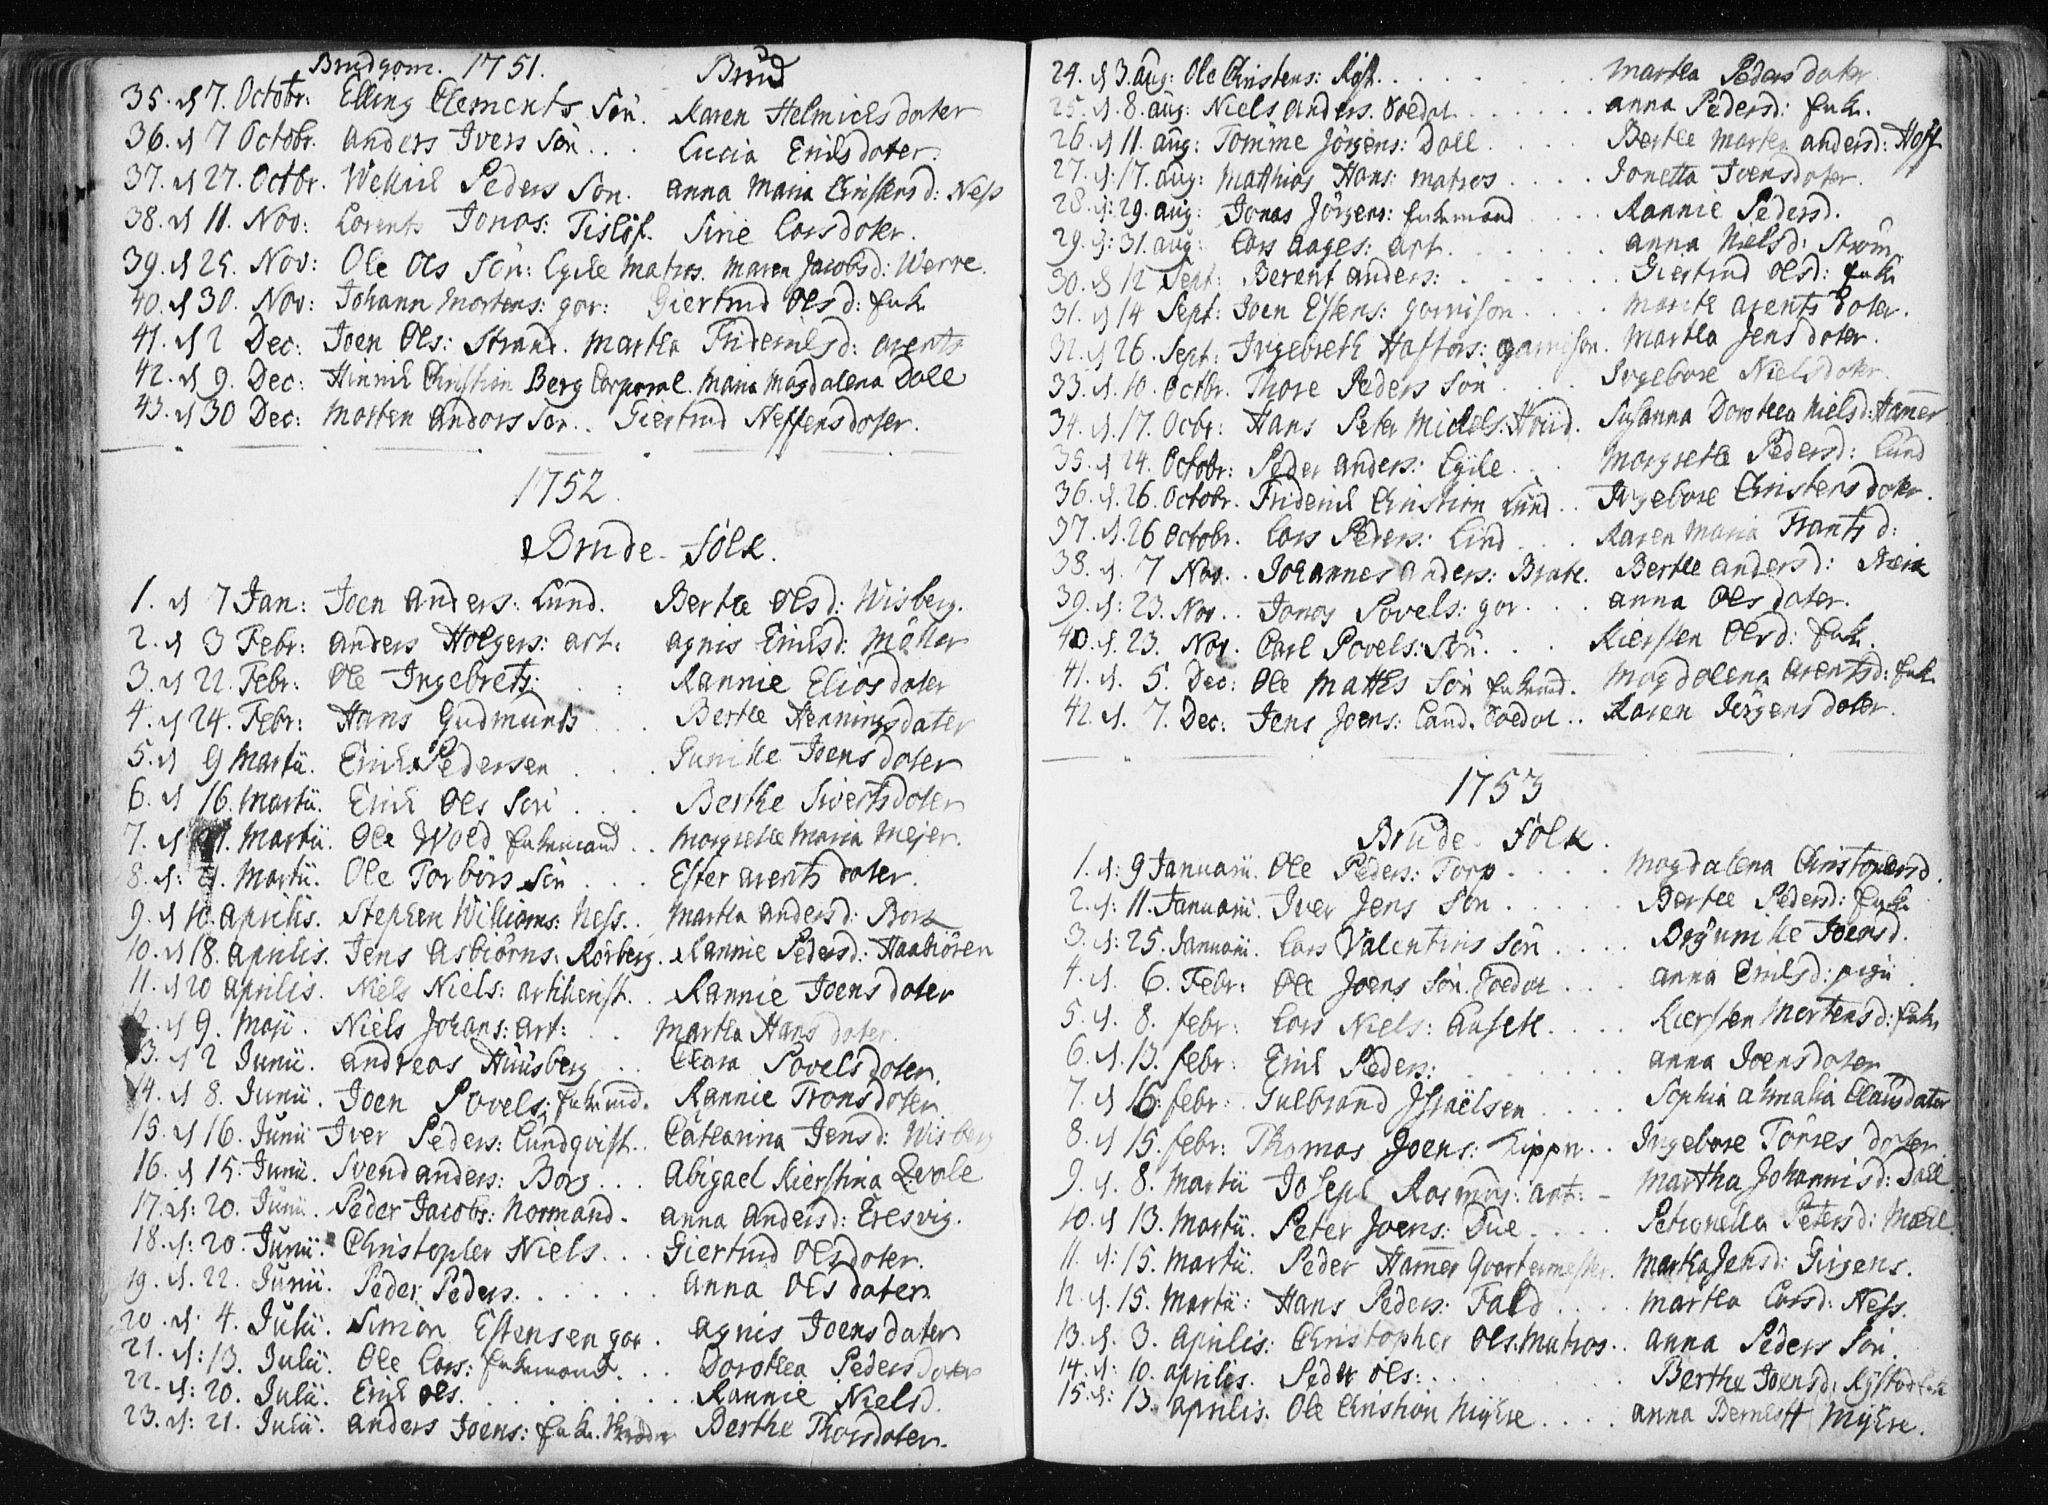 Brudgom. 1751. Brud
35. d 7. Octobr: Elling Clements Sön. Karen Helmichsdoter
36. d 7 Octobr. anders Ivers Sön . . . Lucia Erichsdoter.
37. d 27. Octbr. Peders Sön. anna Maria Christensd: Ness
38. d 11. Nov: Lorents Jonas: Tislöf. Sirie Larsdoter.
39. d 25. Nov: Ole Ols Sön: Matros. Maren Jacobsd: Werre.
40. d 30. Nov: Johann Mortens: gar: Giertrud Olsd: Enk.
41. d 2 Dec: Joen Ols: Strand. Martha Friderichsd: arents
42. d 9. Dec: Hinrich Christian Berg Corporal. Maria Magdalena Doll
43. d 30 Dec: Morten anders Sön. . Giertrud Steffensdoter.
1752.
Brude-folk.
1. d 7 Jan: Joen anders: Lund. Berthe Olsd: Wisberg.
2. d 3 Febr: anders Holgers: art: agnis Erichsd: Möller
3. d 22. Febr: Ole Ingebrets: . . : Rannie Eliasdoter
4. d 24. Febr: Hans Gudmunds . . . Berthe Henningsdater
5. d 9 Martii. Erich Pedersen . . . Gunille Joensdoter
6. d 16. Martii. Erich Ols Sön . . . Berthe Sivertsdoter
7. d Martii. Ole Wold . . Margrethe Maria Mejer.
8. d: Martii. Ole Torbörs Sön . . . Ester arentsdoter.
9. d 10. aprilis. Stephen Williams: Ness. . Martha andersd: Bork
10. d 18. aprilis. Jens Asbiörns: Rörberg. Rannie Pedersd: Haabiören
11. d 20 aprilis. Niels Niels: artilierist. . Rannie Joensdoter
12. d 9. Maji. Niels Johans: art: . . Martha Hansdoter.
13. d 2 Junii. andreas Huusberg . . Clara Povelsdoter.
14. d 8. Junii. Joen Povels: Rannie Tronsdoter
15. d 16. Junii Iver Peders: Lundqvist. . Catharina Jensd: Wisberg
16. d 15. Junii. Svend anders: Borg . . . Abigael Kierstina
17. d: 20. Junii. Peder Jacobs: Normand. anna andersd: Eresvig.
18. d: 20. Junii. Christopher Niels . . . Giertrud Olsdoter.
19. d. 22. Junii. Peder Peders. . . . . . anna Olsdoter.
20. d: 4. Julii. Simon Estensen gar. agnis Joensdater
21. d: 13. Julii. Ole Lars: . . . Dorothea Pedersdoter
22. d: 20. Julii. Erich Ols. . . . . . . Rannie Nielsd.
23. d: 21. Julii. anders Joens: Berthe Thorsdoter.
24. d 3. aug: Ole Christens: . . . . . . Martha Pedersdoter.
25. d. 8. aug: Niels anders. Soldat . . . . . . anna Pedersd: Enk.
26. d 11. aug: Tomme Jörgens: Doll . . . . Berthe Marten andersd: Hoff
27. d: 17. aug: Mathias Hans: Matros . . . . Jonetta Ivensdoter.
28. d: 29. aug: Jonas Jörgens: . . . . Rannie Pedersd.
29. d: 31. aug: Lars aages: art . . . . . . anna Nielsd: Ström
30. d 12 Sept: Berent anders: . . . . . . Giertrud Olsd: Enk
31. d 14 Sept: Joen Estens: garnison . . . . Marith arentsdoter.
32. d 26. Sept: Ingebreth Hastors: garnison. Martha Jensdoter.
33. d. 10. Octbr. Thore Peders Sön . . . . Ingebore Nielsdoter.
34. d. 17. Ocbr: Hans Peter Michels: Susanna Dorothea Nielsd: Hamer
35. d 24. Octobr: Peder anders: . . . Margrethe Pedersd: Lund
36. d. 26. Octobr. Friderich Christian Lund . . Ingebore Christensdoter.
37. d. 26 Octobr. Lars Peders: Lind . . . Karen Maria Frantsd:
38. d. 7 Nov. . Johannes anders: Brath. Berthe andersd:
39. d: 23. Nov. . Jonas Povels: gar . . . anna Olsdoter.
40. d. 23. Nov. Carl Povels: Sön . . . Kiersten Olsd: Enk.
41. d. 5. Dec: Ole Mathis Sön Magdalena arentsd: Enk.
42. d. 7. Dec: Jens Joens: Land. Soldat . . Karen Jörgensdoter.
1753
Brude-folk.
1. d: 9 Januarii. Ole Peders: Torp . . . . Magdalena Christophersd.
2. d: 11. Januarii. Iver Jens Sön . . . . . Berthe Pedersd: Enk.
3. d: 25. Januarii. Lars Valentins Sön . . . . Joensd.
4. d. 6. Febr: Ole Joens Sön. Soldat . . . anna Erichsd:
5. d. 8. febr: Lars Niels: . . . . Kiersten Mortensd: Enk
6. d. 13. febr: Erich Peders: . . . . . . . anna Joensdoter
7. d 16. febr: Gulbrand Israëlsen . . . . Sophia Amalia Clausdater
8. d 15. febr: Thomas Joens: . . Ingebore Törresdoter.
9. d. 8. Martii Joseph Rasmus: art: - Martha Johannisd: Dall.
10. d 13. Martii. Peter Joens: Due . . . . Petronella Petersd:
11. d: 15. Martii. Peder Hamer Qvartermester. Martha Jensd: Girgens.
12. d. 15. Martii: Hans Peders: Fald . . . . Martha Larsd: Ness.
13. d. 3. aprilis: Christopher Ols: Matros. . anna Peders Sön.
14. d: 10. aprilis. Peder Ols: . . . . . . Berthe Joensd:
15. d: 13. aprilis. Ole Christian . . . . anna Bernhoft